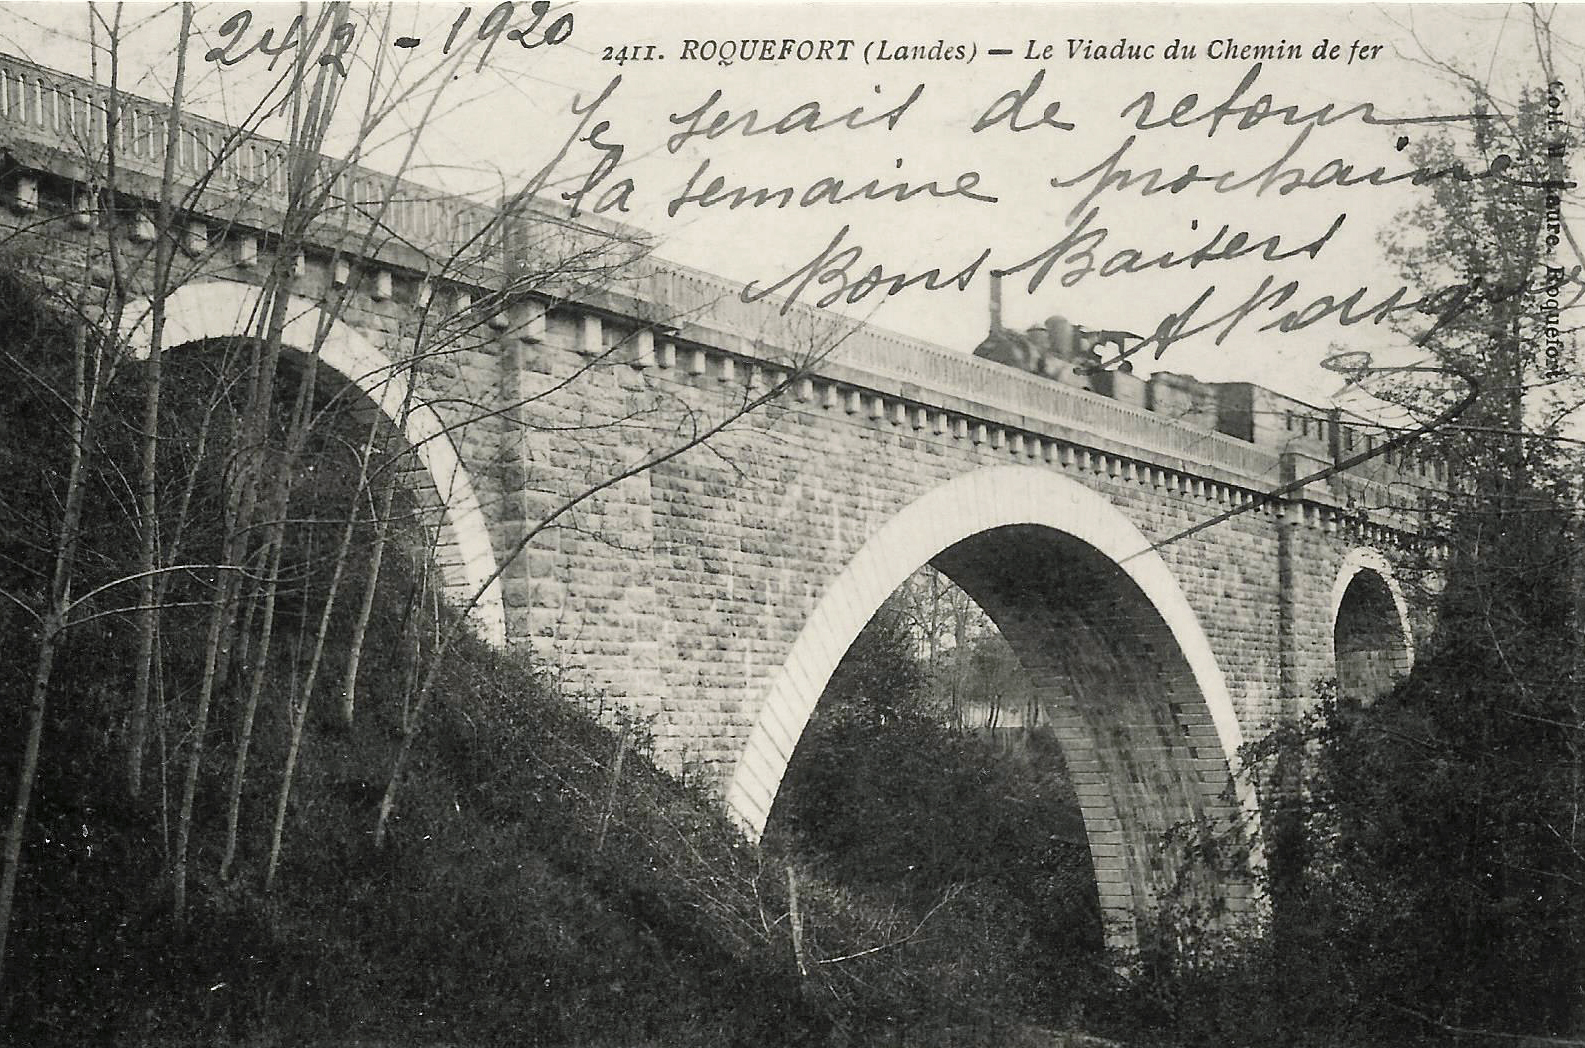 24/2 - 1920
2411. ROQUEFORT (Landes) — Le Viaduc du Chemin de fer
Je serais de retour
la semaine prochaine
Bons Baisers
Coll. Laure, Roquefort